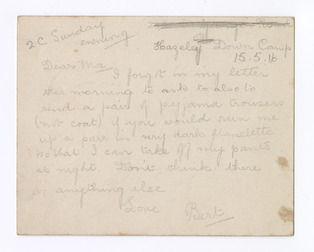 2 C. Sunday
evening
Hazeley Down Camp
15.5.16
Dear Ma,
I forgot in my letter
this morning to ask to also to
send a pair of pyjama trousers
(not coat) if you would run me
up a pair in my dark flanelette
so that I can take off my pants
at night. Don't think there
is anything else
Love
Bert